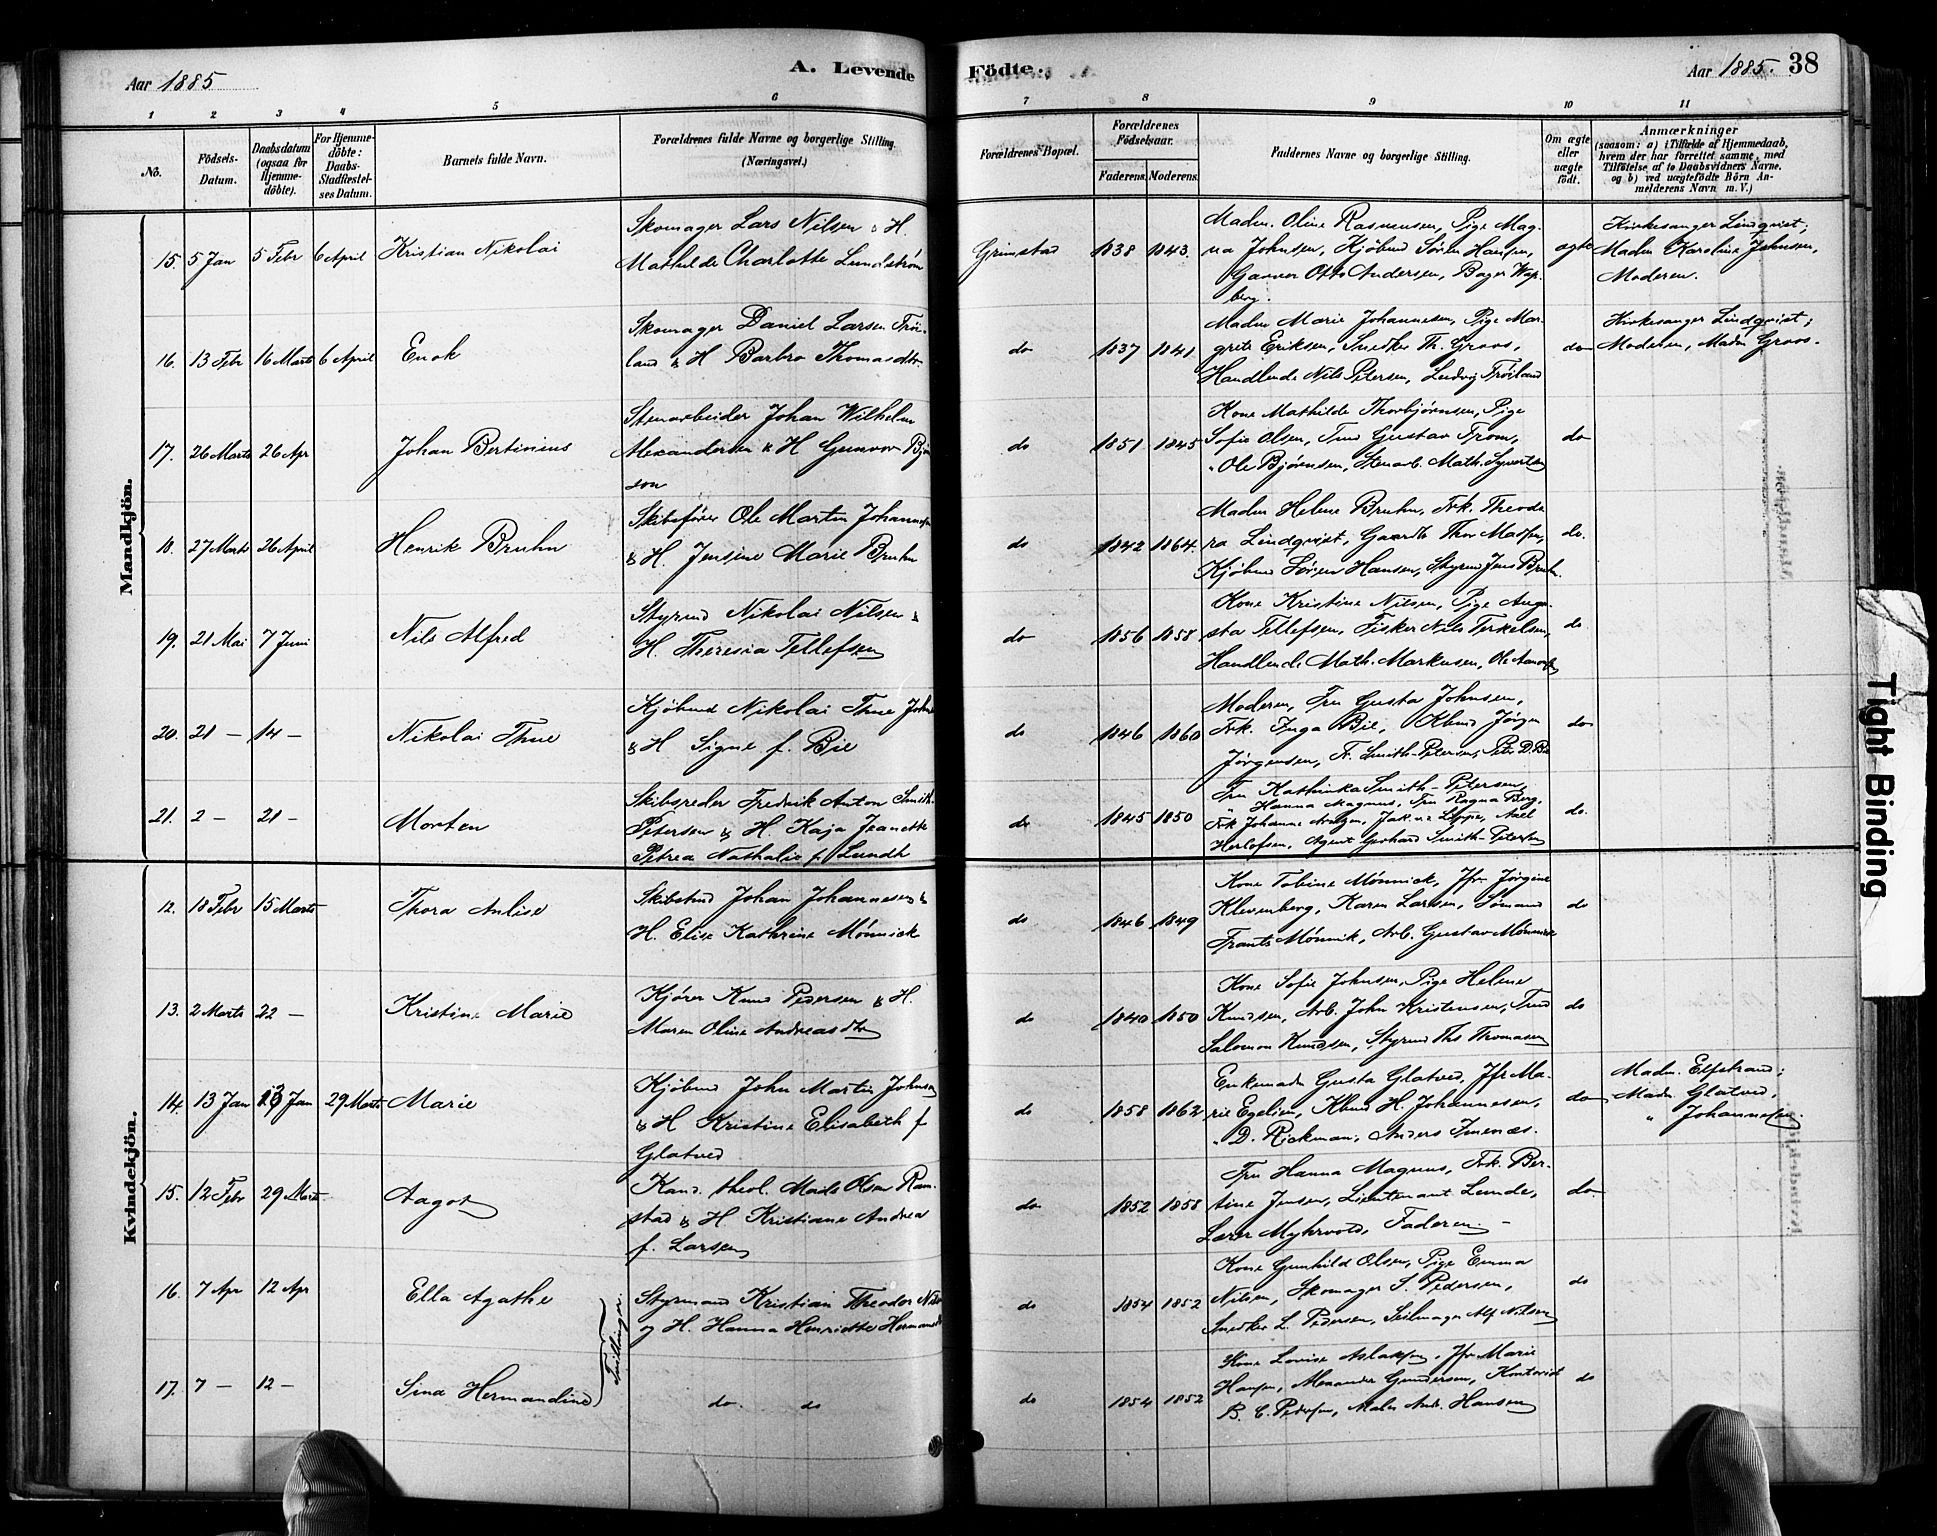 Aar 1885
A. Levende
Födte.
Aar 1885. 38
1 2 3 4 5 6 7 8 9 10 11
No.
Födsels-Datum.
Daabsdatum (ogsaa for Hjemme-döbte).
For Hjemme-döbte: Daabs-Stadfæstel-ses Datum.
Barnets fulde Navn.
Forældrenes fulde Navne og borgerlige Stilling. (Næringsvei.)
Forældrenes Bopæl.
Forældrenes Födselsaar.
Faderens. Moderens.
Faddernes Navne og borgerlige Stilling.
Om ægte eller uægte födt.
Anmærkninger
(saasom: a) i Tilfælde af Hjemmedaab,
hvem der har forrettet samme, med
Tilföielse af to Daabsvidners Navne.
og b) ved uægtefödte Börn An-
melderens Navn m. V.)
Mandkjön.
15. 5 Jan 5 Febr 6 April Kristian Nikolai
Skomager Lars Nilsen & H.
Mathilde Charlotte Lundstrøm
Grimstad 1838 1843.
Madm. Oline Rasmussen, Pige Mag-
na Johnsen, Kjøbmd Søren Hansen,
Garver Otto Andersen, Bager Wap-
berg.
ægte
Kirkesanger Lindqvist;
Madm Karoline Johnsen,
Moderen.
16. 13 Febr 16 Marts 6 April Enok
Skomager Daniel Larsen Frøi-
land & H Barbro Thomasdtr.
do 1837 1841
Madm Marie Johannesen, Pige Mar-
grete Eriksen, Snedker Th. Groos,
Handlende Nils Petersen, Ludvig Frøiland
do
Kirkesanger Lindqvist;
Moderen, Madm Groos.
17. 26 Marts 26 Apr Johan Bertinius
Stenarbeider Johan Wilhelm
Alexandersen & H Gunvor Bjørn
son
do 1851 1845
Kone Mathilde Thorbjørnsen, Pige
Sofie Olsen, Tmd Gustav From,
" Ole Bjørnsen, Stenarb. Math. Syvertsen
do
18. 27 Marts 26 April Henrik Bruhn
Skibsfører Ole Martin Johannesen
& H. Jensine Marie Bruhn
do 1842 1864.
Madm Helene Bruhn, Frk. Theodo
ra Lindqvist, Gaardbr Thor Madsen,
Kjøbmd Søren Hansen, Styrmd Jens Bruhn.
do.
19. 21 Mai 7 Juni Nils Alfred
Styrmd Nikolai Nilsen &
H. Theresia Tellefsen
do 1856 1858
Kone Kristine Nilsen, Pige Augu-
sta Tellefsen, Fisker Nils Terkelsen,
Handlende Math. Markusen, Ole
do
20. 21 – 14 – Nikolai Thue
Kjøbmd Nikolai Thue John
& H Signe f. Bie
do 1846 1860
Moderen, Fru Gusta Johnsen,
Frk. Inga Bie, Kbmd Jørgen
Jørgensen, Fr. Smith-Petersen, Peter D. Bie
do
21. 2 – 21 – Morten
Skibsreder Fredrik Anton Smith-
Petersen & H. Kaja Jeanette
Petrea Nathalie f. Lundh
do 1845 1850
Fru Kathinka Smith-Petersen,
" Hanna Magnus, Fru Ragna Berg,
Frk Johanne Axel
Herlofsen, Agent Gerhard Smith-Petersen
do.
Kvindekjön.
12. 18 Febr 15 Marts Thora Anlise
Skibstmd Johan Johannesen &
H. Elise Kathrine Mönnick
do 1846 1849
Kone Tobine Mönnick, Jfr Jørgine
Klevenberg, Karen Larsen, Sømand
Frants Mönnik, Arb. Gustav Mönnick
do
13. 2 Marts 22 – Kristine Marie
Kjører Knud Pedersen & H.
Maren Oline Andreasdtr
do 1840 1850
Kone Sofie Johnsen, Pige Helene
Knudsen, Arb. John Kristensen, Tmd
Salomon Knudsen, Styrmd Ths Thomasen
do
14. 13 Jan 13 Jan 29 Marts Marie
Kjøbmd John Martin Johnsen
& H Kristine Elisabeth f
Glatved
do 1858 1862
Enkemadm Gusta Glatved, Jfr Ma-
rie Egelien, Kbmd H. Johannesen,
" D. Rickman, Anders Imenæs.
do
Madm. Elfstrand;
Madm. Glatved,
" Johannesen.
15. 12 Febr 29 Marts Aagot
Kand. theol. Mads Olsen Ram
stad & H Kristiane Andrea
f. Larsen
do. 1852 1858
Fru Hanna Magnus, Frk. Ber-
tine Jensen, Lieutenant Lunde,
Lærer Myhrvold, Faderen. –
do
16. 7 Apr 12 Apr Ella Agathe
Styrmand Kristian Theodor Nils
og H. Hanna Henriette Hermansdtr
do 1854 1852
Kone Gunhild Olsen, Pige Emma
Nilsen, Skomager S. Pedersen,
Snedker L. Pedersen, Seilmager Alf Nilsen
do
Tvillinger.
17. 7 – 12 – Sina Hermandine
do. do
do 1854 1852
Kone Lovise Aslaksen, Jfr Marie
Hansen, Alexander Gundersen, Kontorist
B. C. Pedersen, Maler Hansen
do
Tight Binding